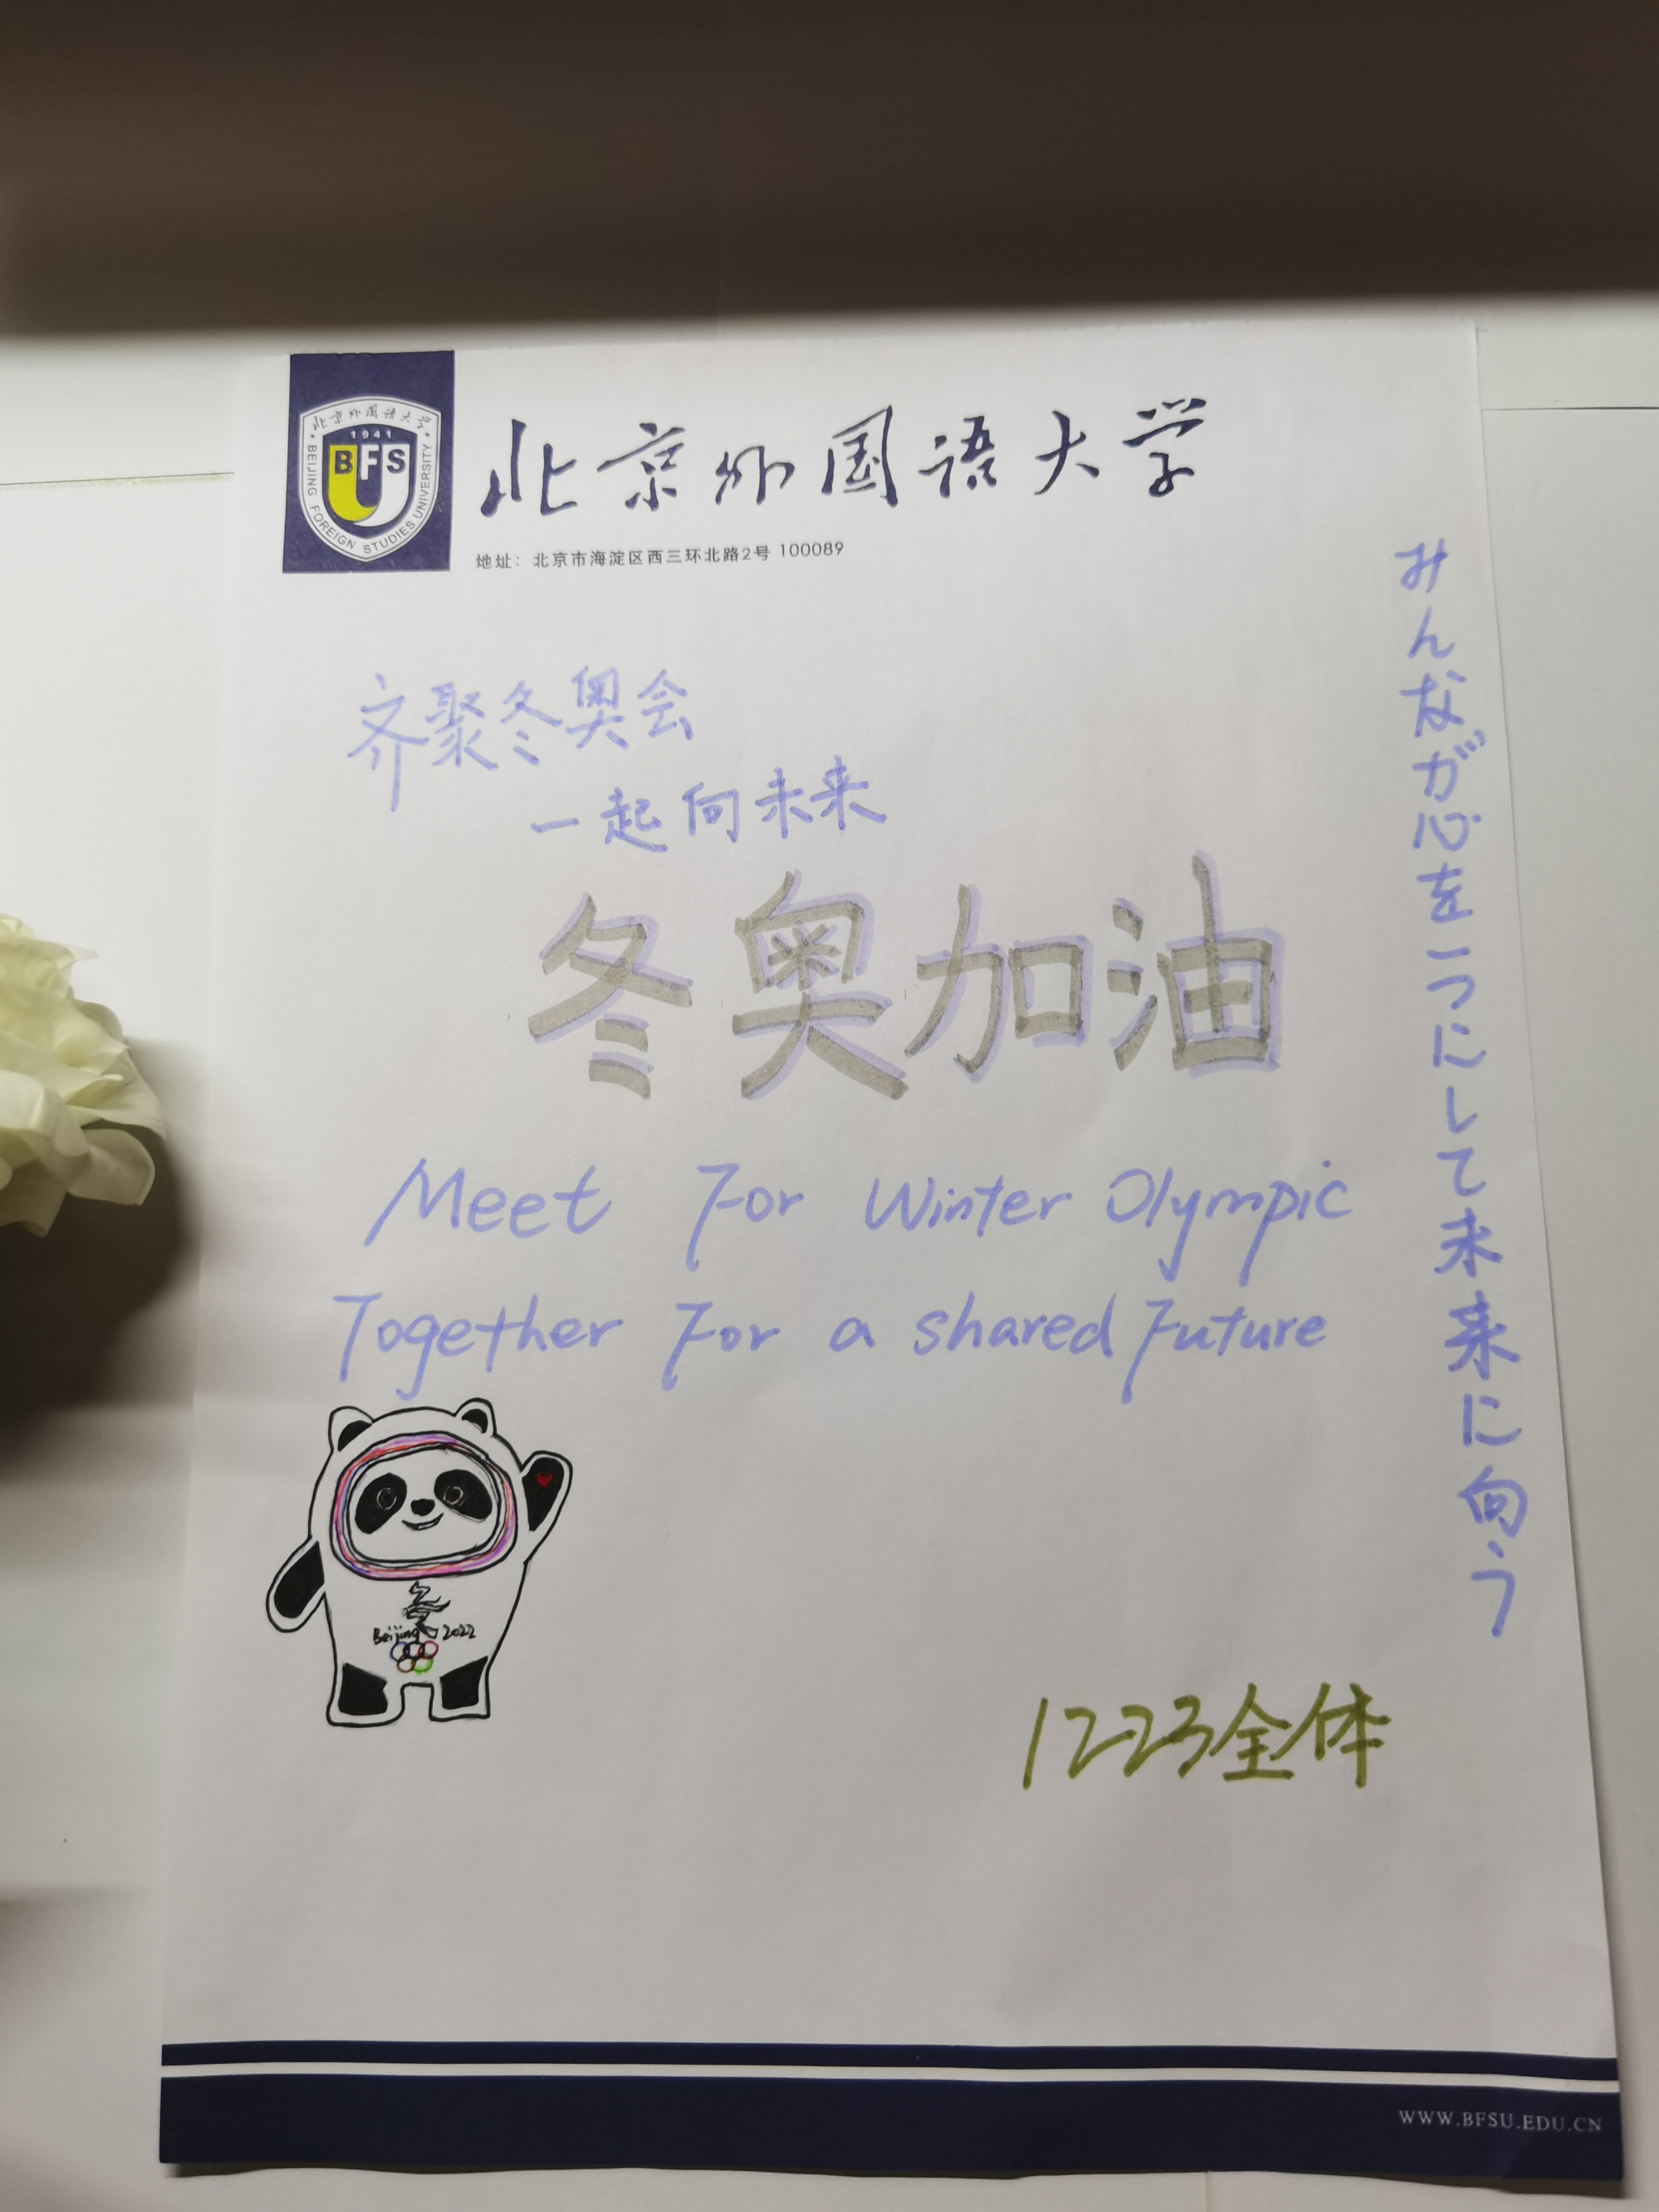 北京外国语大学
1941
BFSU
BEIJING FOREIGN STUDIES UNIVERSITY
北京外国语大学
地址：北京市海淀区西三环北路2号 100089
齐聚冬奥会
一起向未来
冬奥加油
Meet For Winter Olympic
Together For a shared Future
みんなが心を一つにして未来に向う
Beijing 2022
1223全体
WWW.BFSU.EDU.CN